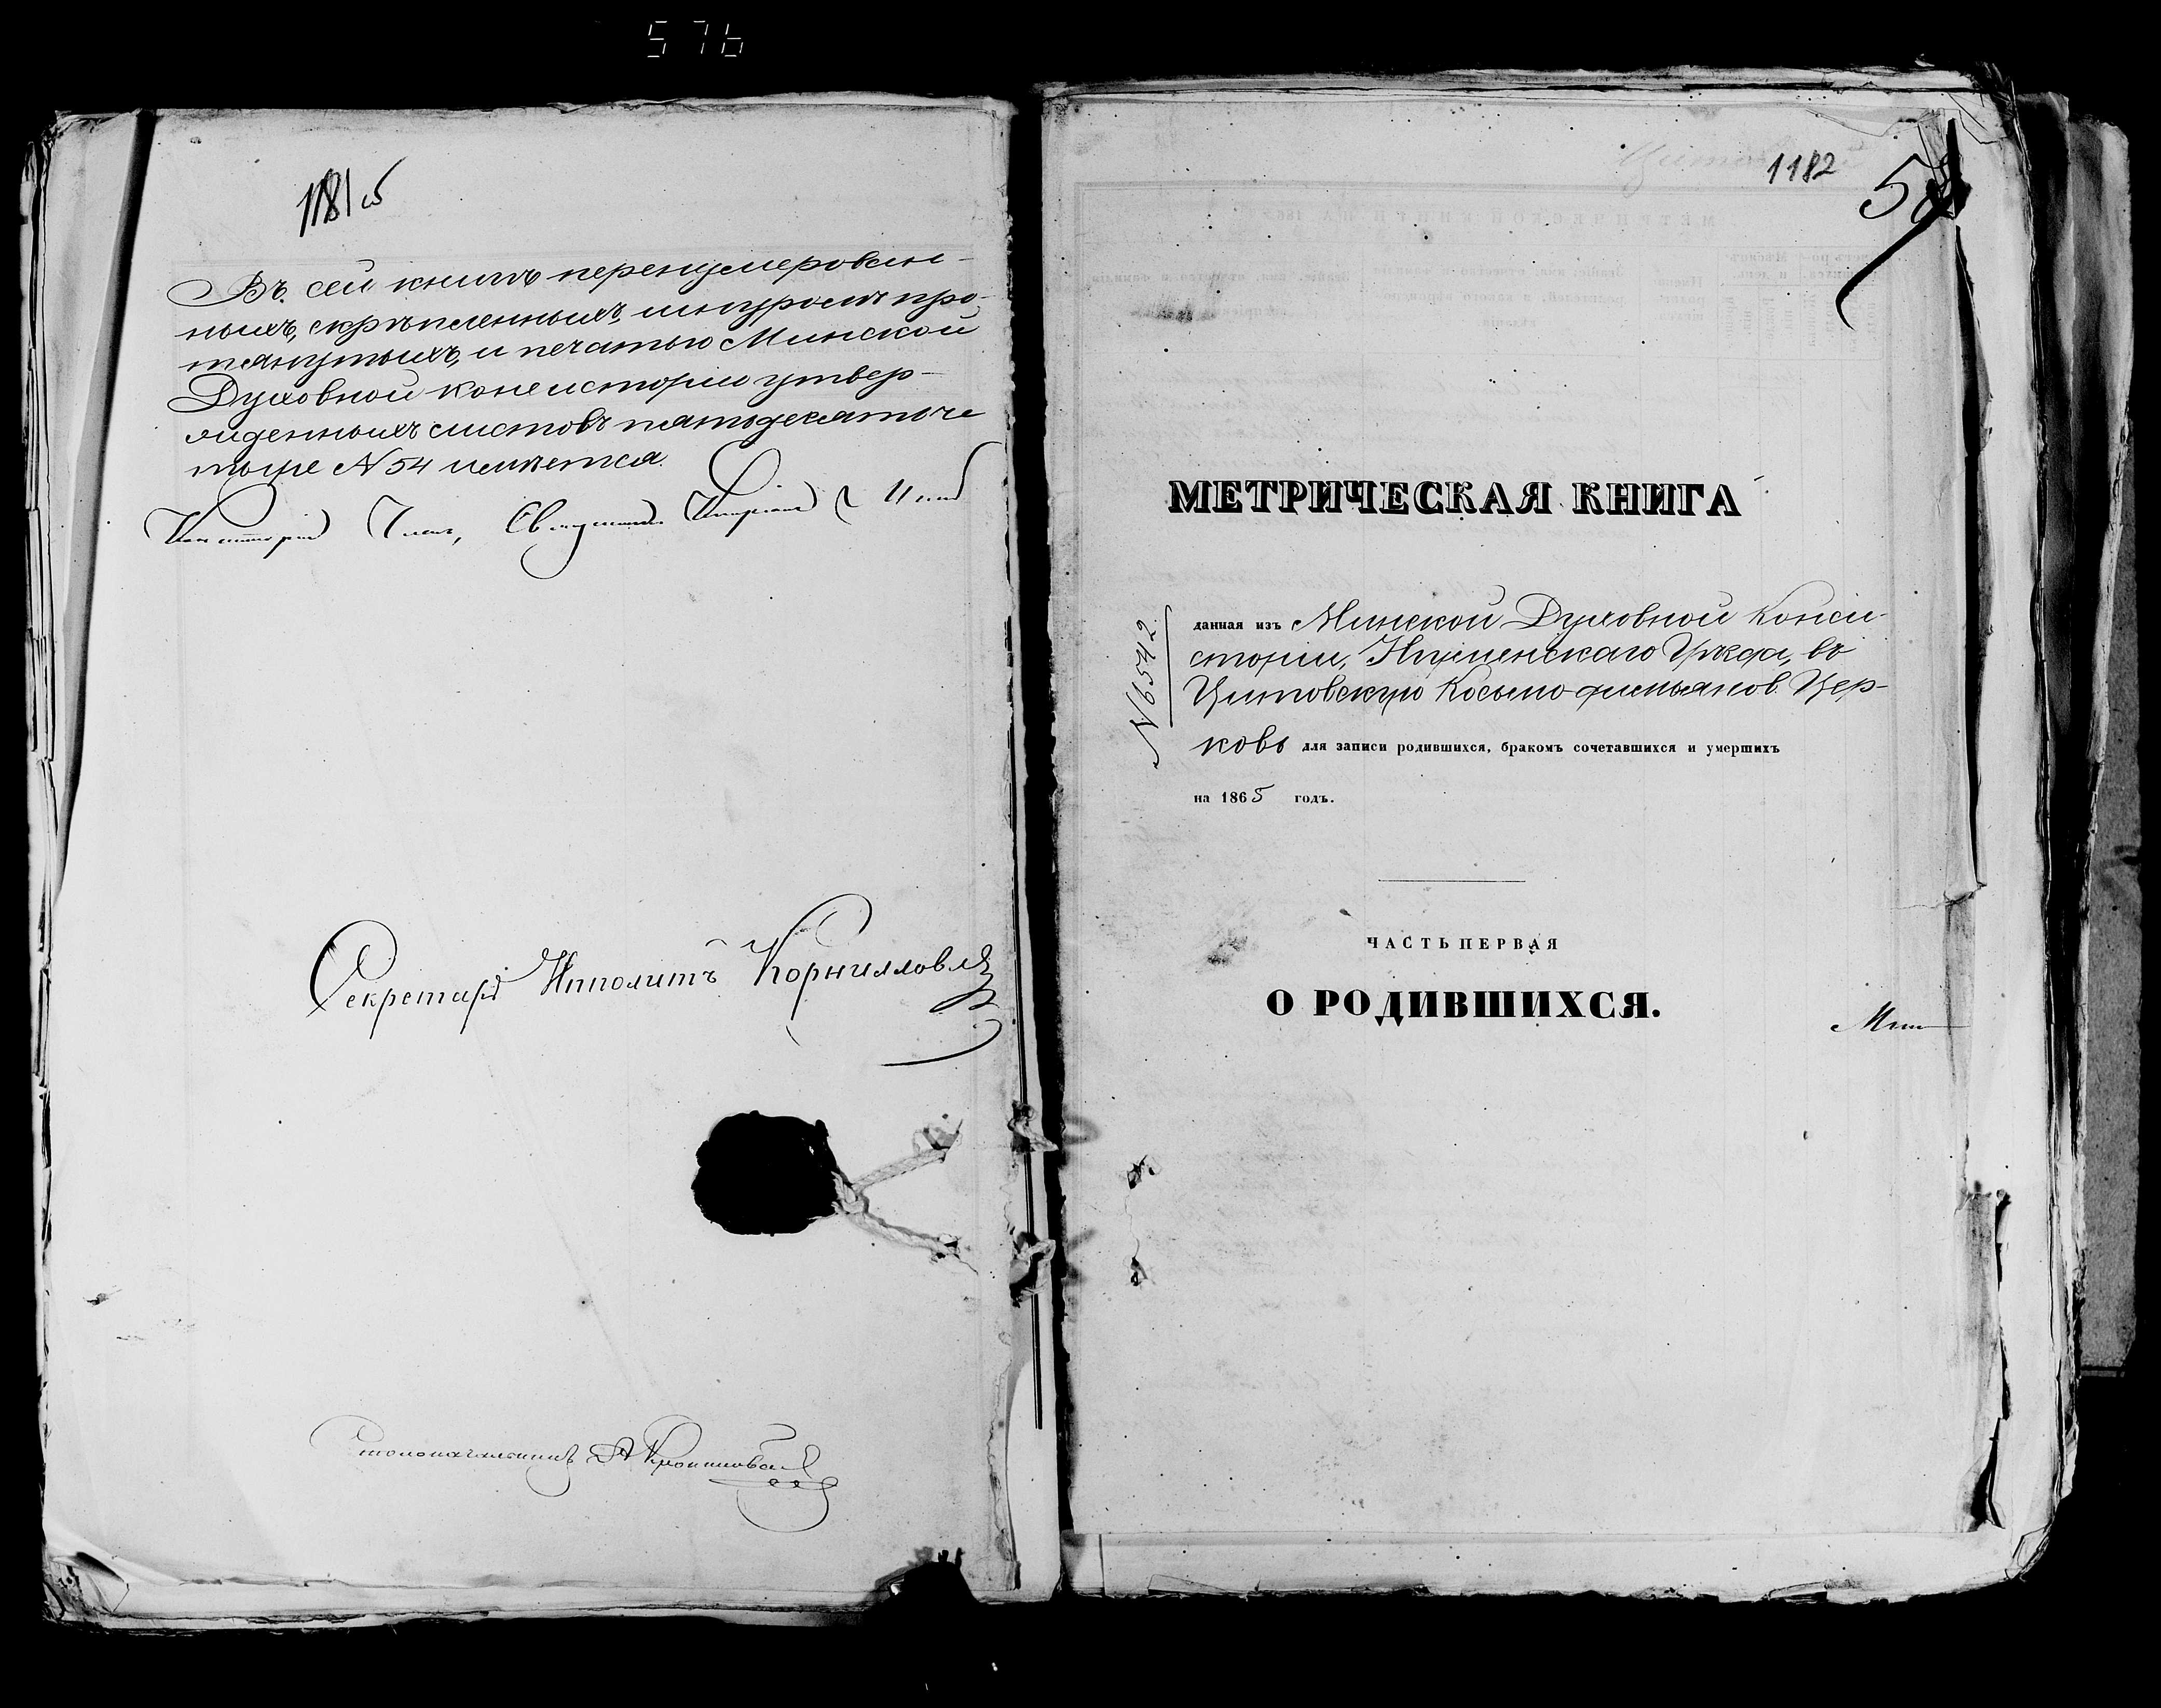 576
1181 об
Въ сей книгѣ перенумерован-
ныхъ, скрѣпленныхъ, шнуромъ про-
тянутыхъ, и печатью Минской
Духовной консисторіи утвер-
жденныхъ листовъ пятьдесятъ че
тыре N 54 имѣется.
Консисторіи Членъ, Священникъ
Секретарь Ипполитъ
Столоначальникъ
1182
МЕТРИЧЕСКАЯ КНИГА
N 6542
данная изъ Минской Духовной Конси-
сторіи, Игуменскаго Уѣзда, въ
Цитовскую Косьмо-даміанов. Цер-
ковь для записи родившихся, бракомъ сочетавшихся и умершихъ
на 1865 годъ.
ЧАСТЬ ПЕРВАЯ
О РОДИВШИХСЯ.